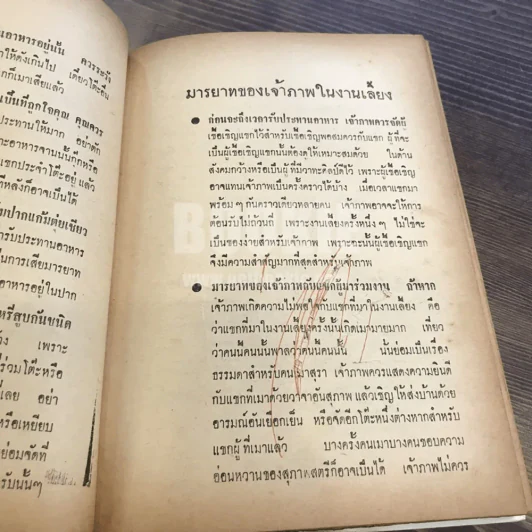 นอาหารอยู่นั้น ควรระวัง
าให้ดังเกินไป เดี๋ยวโต๊ะอื่น
กก็เมาเสียแล้ว
เป็นที่ถูกใจคุณ คุณควร
ประทานให้มาก อย่าตัก
าะอาหารจานนั้นถูกหรือ
แขกประจำโต๊ะอยู่ แล้ว
ที่หลังก็อาจเป็นได้
มปากแก้มตุ่ยเขียว
ารับประทานอาหาร
เป็นการเสียมารยาท
อาหารอยู่ในปาก
หรี่สูบกันชนิด
าง เพราะ
ร่วมโต๊ะหรือ
เลย อย่า
หรือเหยียบ
ย่อมจัดที่
รับนั้นๆ
มารยาทของเจ้าภาพในงานเลี้ยง
● ก่อนจะถึงเวลารับประทานอาหาร เจ้าภาพควรจัดผู้
เชื้อเชิญแขกไว้สำหรับเชื้อเชิญพอสมควรกับแขก ผู้ที่จะ
เป็นผู้เชื้อเชิญแขกนั้นต้องดูให้เหมาะสมด้วย ในด้าน
สังคมกว้างหรือเป็นผู้ที่มีวาทะศิลป์ดีไว้ เพราะผู้เชื้อเชิญ
อาจแทนเจ้าภาพเป็นครั้งคราวได้บ้าง เมื่อเวลาแขกมา
พร้อมๆ กันคราวเดียวหลายคน เจ้าภาพอาจจะให้การ
ต้อนรับไม่ถ้วนถี่ เพราะงานเลี้ยงครั้งหนึ่งๆ ไม่ใช่จะ
เป็นของง่ายสำหรับเจ้าภาพ เพราะฉะนั้นผู้เชื้อเชิญแขก
จึงมีความสำคัญมากที่สุดสำหรับเจ้าภาพ
● มารยาทของเจ้าภาพกับแขกผู้มาร่วมงาน ถ้าหาก
เจ้าภาพเกิดความไม่พอใจกับแขกที่มาในงานเลี้ยง คือ
ว่าแขกที่มาในงานเลี้ยงครั้งนั้นเกิดเมามายมาก เที่ยว
ว่าคนนี้คนนั้นพาลว่าคนนี้คนนั้น นั่นย่อมเป็นเรื่อง
ธรรมดาสำหรับคนเมาสุรา เจ้าภาพควรแสดงความยินดี
กับแขกที่เมาด้วยวาจาอันสุภาพ แล้วเชิญให้ส่งบ้านด้วย
อารมณ์อันเยือกเย็น หรือจัดอีกโต๊ะหนึ่งต่างหากสำหรับ
แขกผู้ที่เมาแล้ว บางครั้งคนเมาบางคนชอบความ
อ่อนหวานของสุภาพสตรีก็อาจเป็นได้ เจ้าภาพไม่ควร